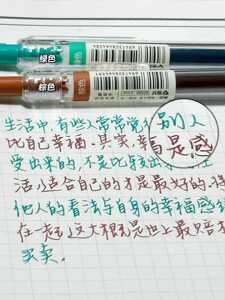 绿色
棕色
生活中,有些人常常觉得别人
比自己幸福。其实,幸福是感
受出来的,不是比较出来的,生
活,适合自己的才是最好的,将
他人的看法与自身的幸福感
在一起,这大概是世上最
买卖.